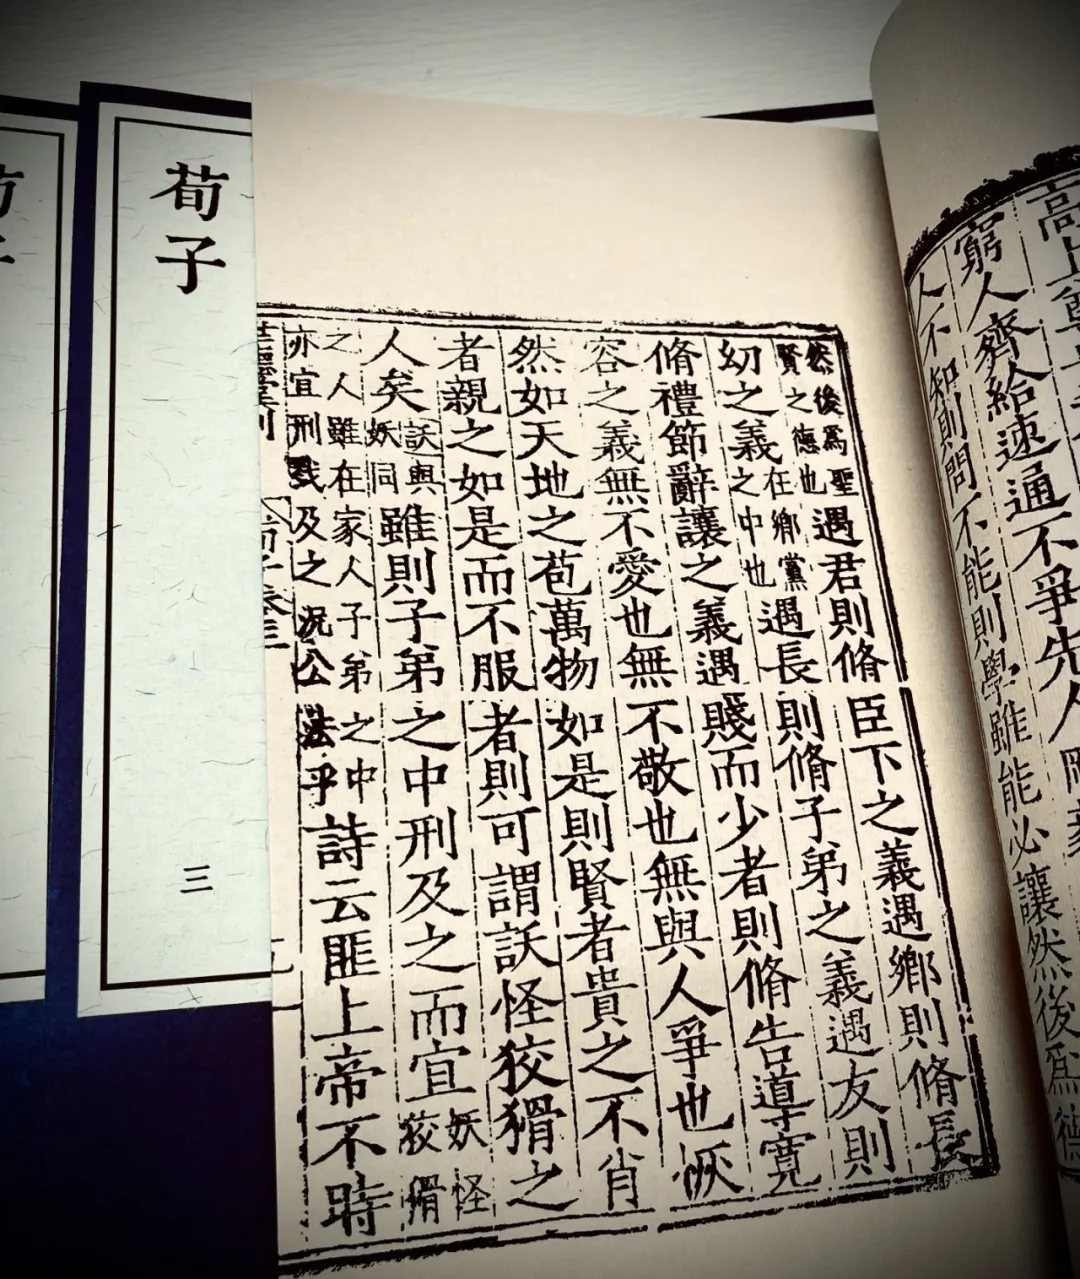 窮人齊給速通不爭先人
人不知則問不能則學雖能必讓然後爲德
然後爲聖賢之德也遇君則脩臣下之義遇鄉則脩長
幼之義在鄉黨之中也遇長則脩子弟之義遇友則
脩禮節辭讓之義遇賤而少者則脩告導寬
容之義無不愛也無不敬也無與人爭也恢
然如天地之苞萬物如是則賢者貴之不肖
者親之如是而不服者則可謂訞怪狡猾之
人矣訞與妖同雖則子弟之中刑及之而宜妖怪狡猾
之人雖在家人子弟之中亦宜刑戮及之況公法乎詩云匪上帝不時
荀子
三